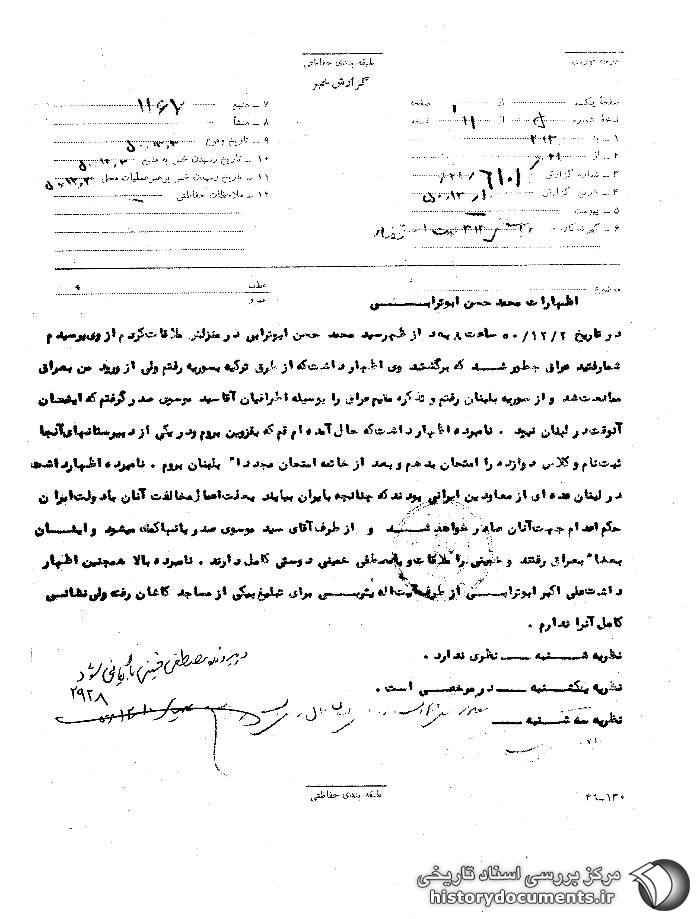 طبقه بندی حفاظتی
گزارش خبر
صفحه یک از ۱ صفحه
نسخه شماره از نسخه
۱ ـ به ۳۱۲
۲ ـ از ۲۱
۳ ـ شماره گزارش
۴ ـ تاریخ گزارش
۵ ـ پیوست
۶ ـ گیرندگان
۷ ـ منبع ۱۱۶۲
۸ ـ منشأ
۹ ـ تاریخ وقوع
۱۰ ـ تاریخ رسیدن خبر به منبع
۱۱ ـ تاریخ رسیدن خبر برهبر عملیات محل
۱۲ ـ ملاحظات حفاظتی
موضوع
عطف
اظهارات محمد حسن ابوترابی
در تاریخ ۵۰/۱۲/۲ ساعت ۸ بعد از ظهر سید محمد حسن ابوترابی در منزلش ملاقات کردم از وی پرسیدم
شما رفتید عراق چطور شد که برگشتید وی اظهار داشت که از طرق ترکیه بسوریه رفتم ولی از ورود من بعراق
ممانعت شد و از سوریه بلبنان رفتم و تذکره مقیم عراق را بوسیله اطرافیان آقا سید موسوی صدر گرفتم که ایشان
آنوقت در لبنان نبود . نامبرده اظهار داشت که حال آمده ام قم که بقزوین بروم و در یکی از دبیرستانهای آنجا
ثبت نام و کلاس دوازده را امتحان بدهم و بعد از خاتمه امتحان مجددا" بلبنان بروم . نامبرده اظهار داشت
در لبنان عده ای از معاودین ایرانی بودند که چنانچه بایران بیایند بعلت اعمال مخالفت آنان با دولت ایران
حکم اعدام جهت آنان صادر خواهد شد و از طرف آقای سید موسوی صدر بآنها کمک میشود و ایشان
بعدا" بعراق رفتند و خمینی را ملاقات و با مصطفی خمینی دوستی کامل دارند . نامبرده بالا همچنین اظهار
داشت علی اکبر ابوترابی از طرف آیت اله یثربی برای تبلیغ بیکی از مساجد کاشان رفته ولی نشانی
کامل آنرا ندارم .
نظریه شنبه ـ نظری ندارد .
نظریه یکشنبه ـ در مرخصی است .
نظریه سه شنبه ـ
در پرونده مصطفی خمینی بایگانی شود
۲۹۲۸
طبقه بندی حفاظتی
۴۶ـ۱۳۰
مرکز بررسی اسناد تاریخی
historydocuments.ir